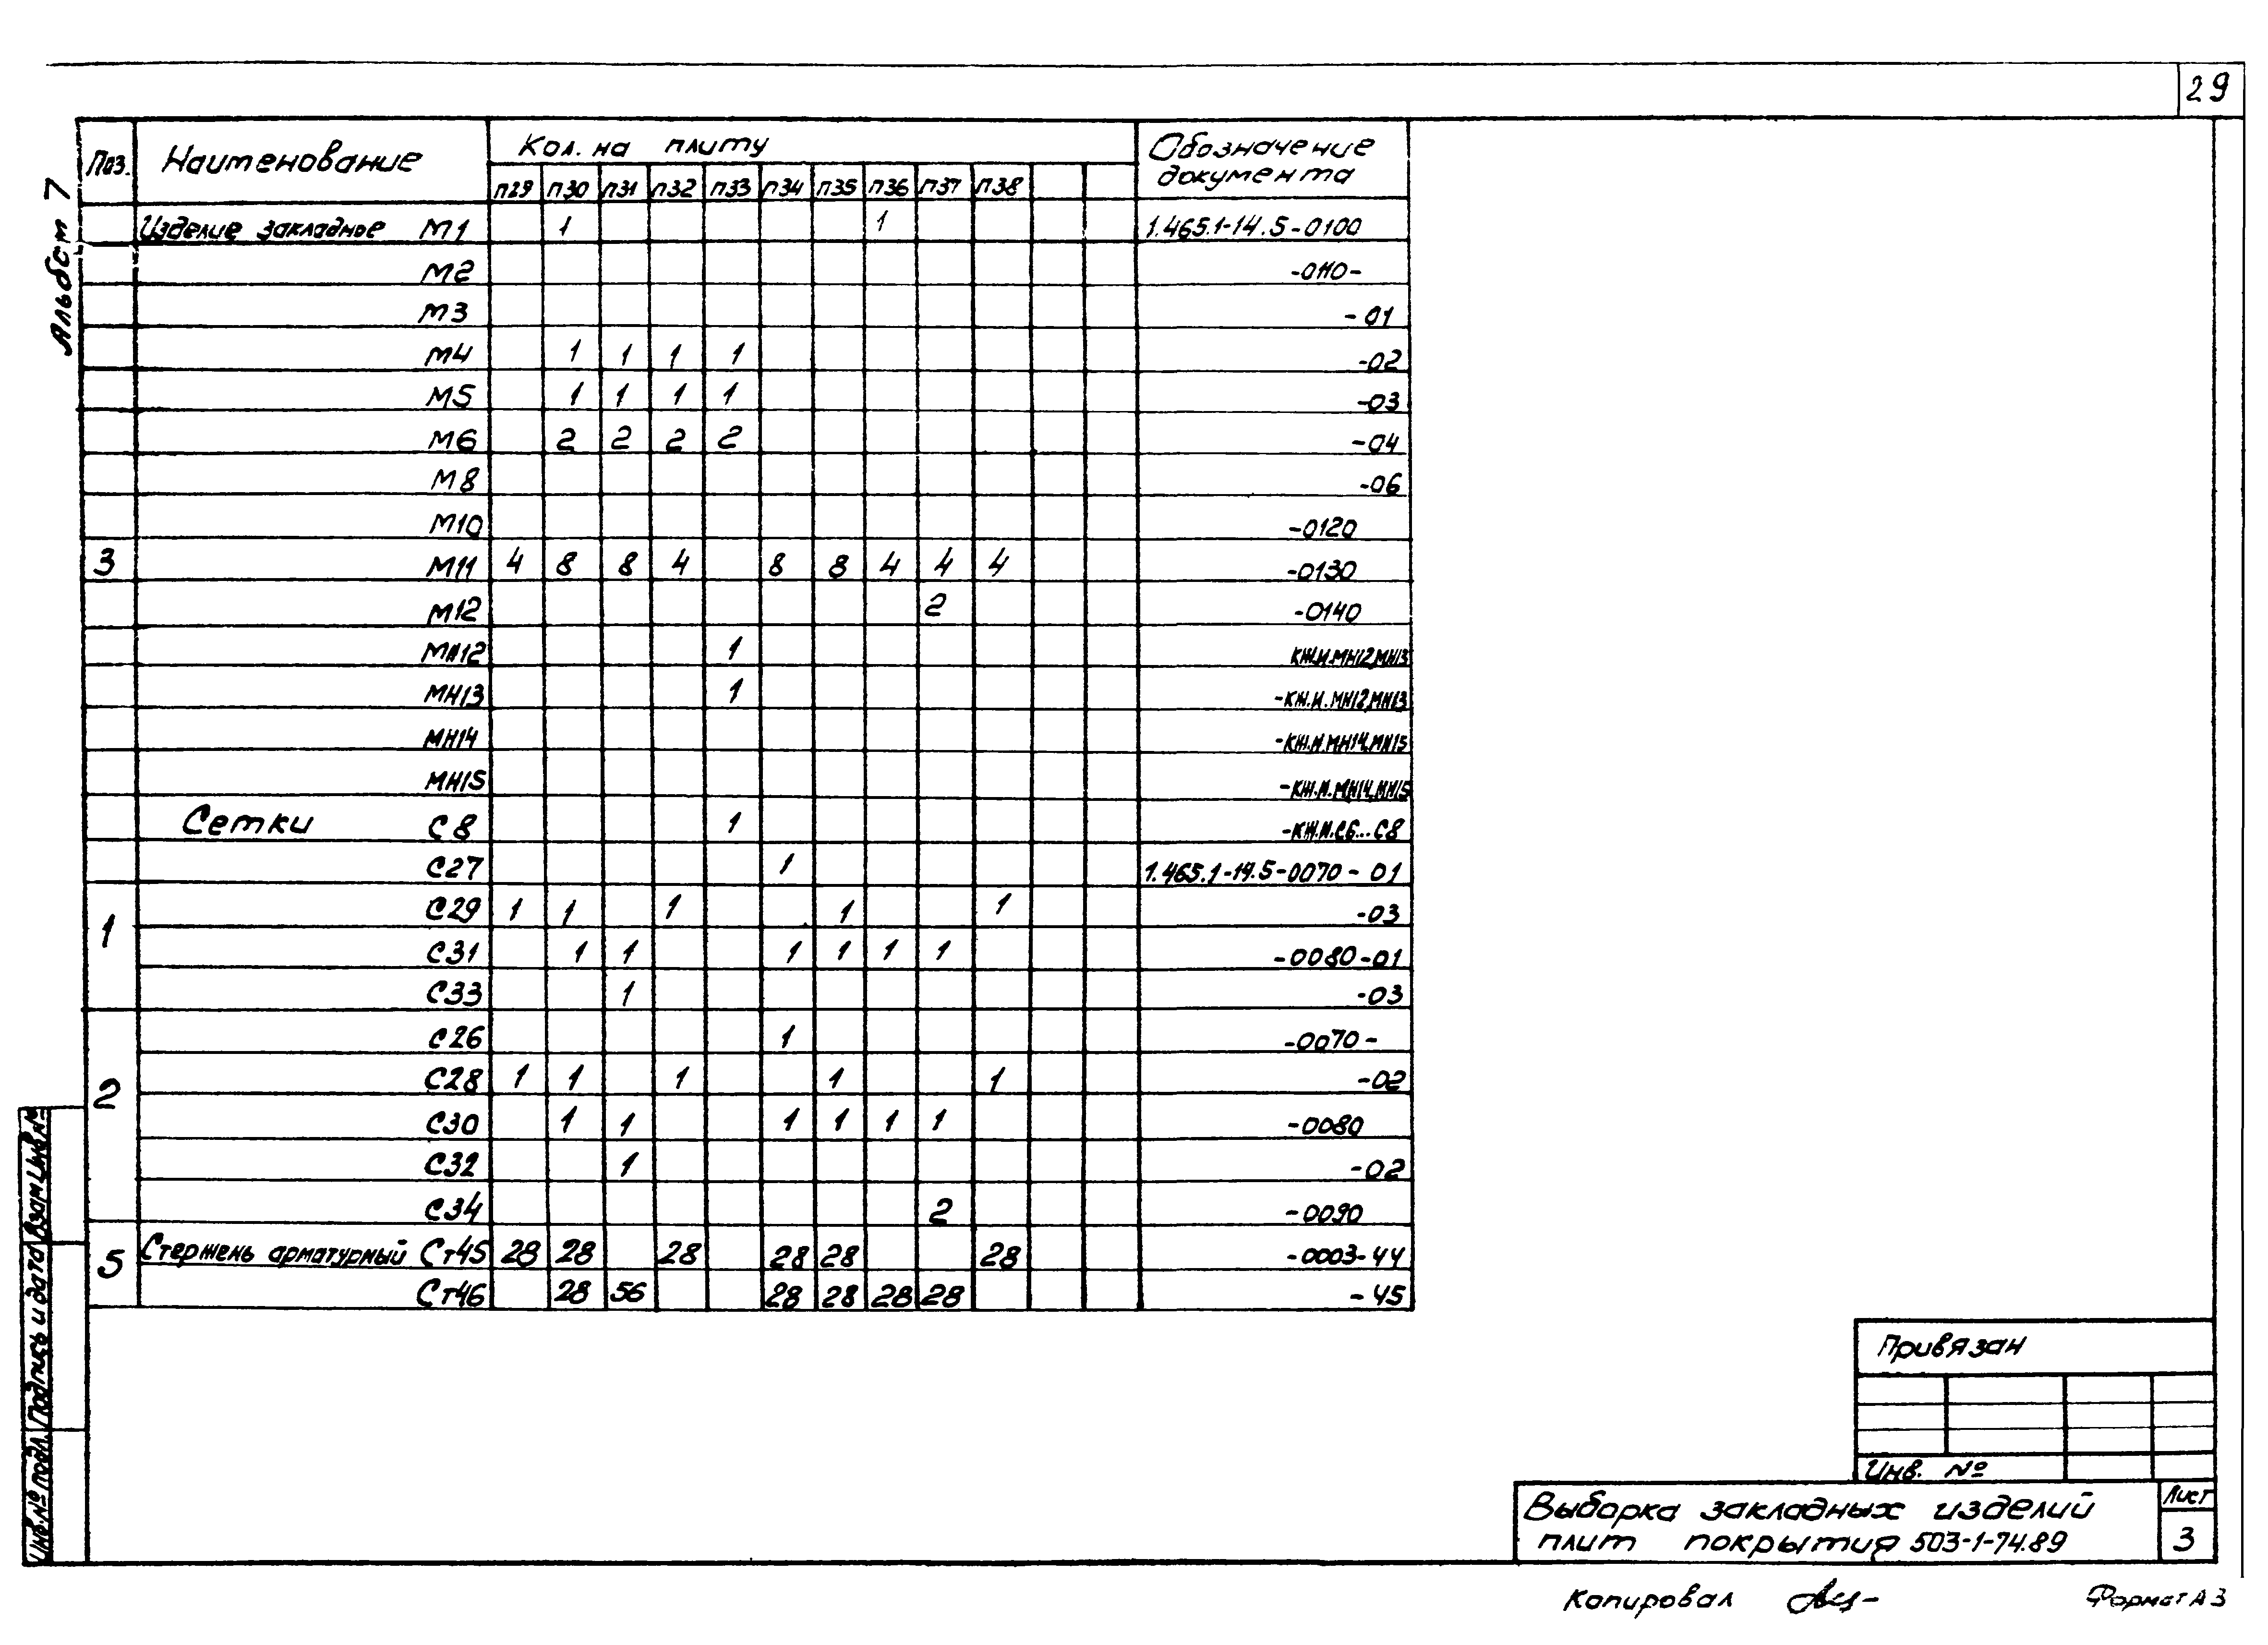 29
Альбом 7
Поз. Наименование Кол. на плиту Обозначение документа
п29 п30 п31 п32 п33 п34 п35 п36 п37 п38
Изделие закладное М1 1 1 1.465.1-14.5-0100
М2 -0110-
М3 -01
М4 1 1 1 1 -02
М5 1 1 1 1 -03
М6 2 2 2 2 -04
М8 -06
М10 -0120
3 М11 4 8 8 4 8 8 4 4 4 -0130
М12 2 -0140
МН12 1 КЖ.И.МН12,МН13
МН13 1 -КЖ.И.МН12,МН13
МН14 -КЖ.И.МН14,МН15
МН15 -КЖ.И.МН14,МН15
Сетки С8 1 -КЖ.И.С6...С8
С27 1 1.465.1-14.5-0070-01
1 С29 1 1 1 1 1 -03
С31 1 1 1 1 1 1 -0080-01
С33 1 -03
С26 1 -0070-
2 С28 1 1 1 1 1 -02
С30 1 1 1 1 1 1 -0080
С32 1 -02
С34 2 -0090
5 Стержень арматурный Ст45 28 28 28 28 28 28 -0003-44
Ст46 28 56 28 28 28 28 -45
Взам.Инв.№
Подпись и дата
Инв.№ подл.
Привязан
Инв. №
Выборка закладных изделий
плит покрытия 503-1-74.89
Лист
3
Копировал
Формат А3